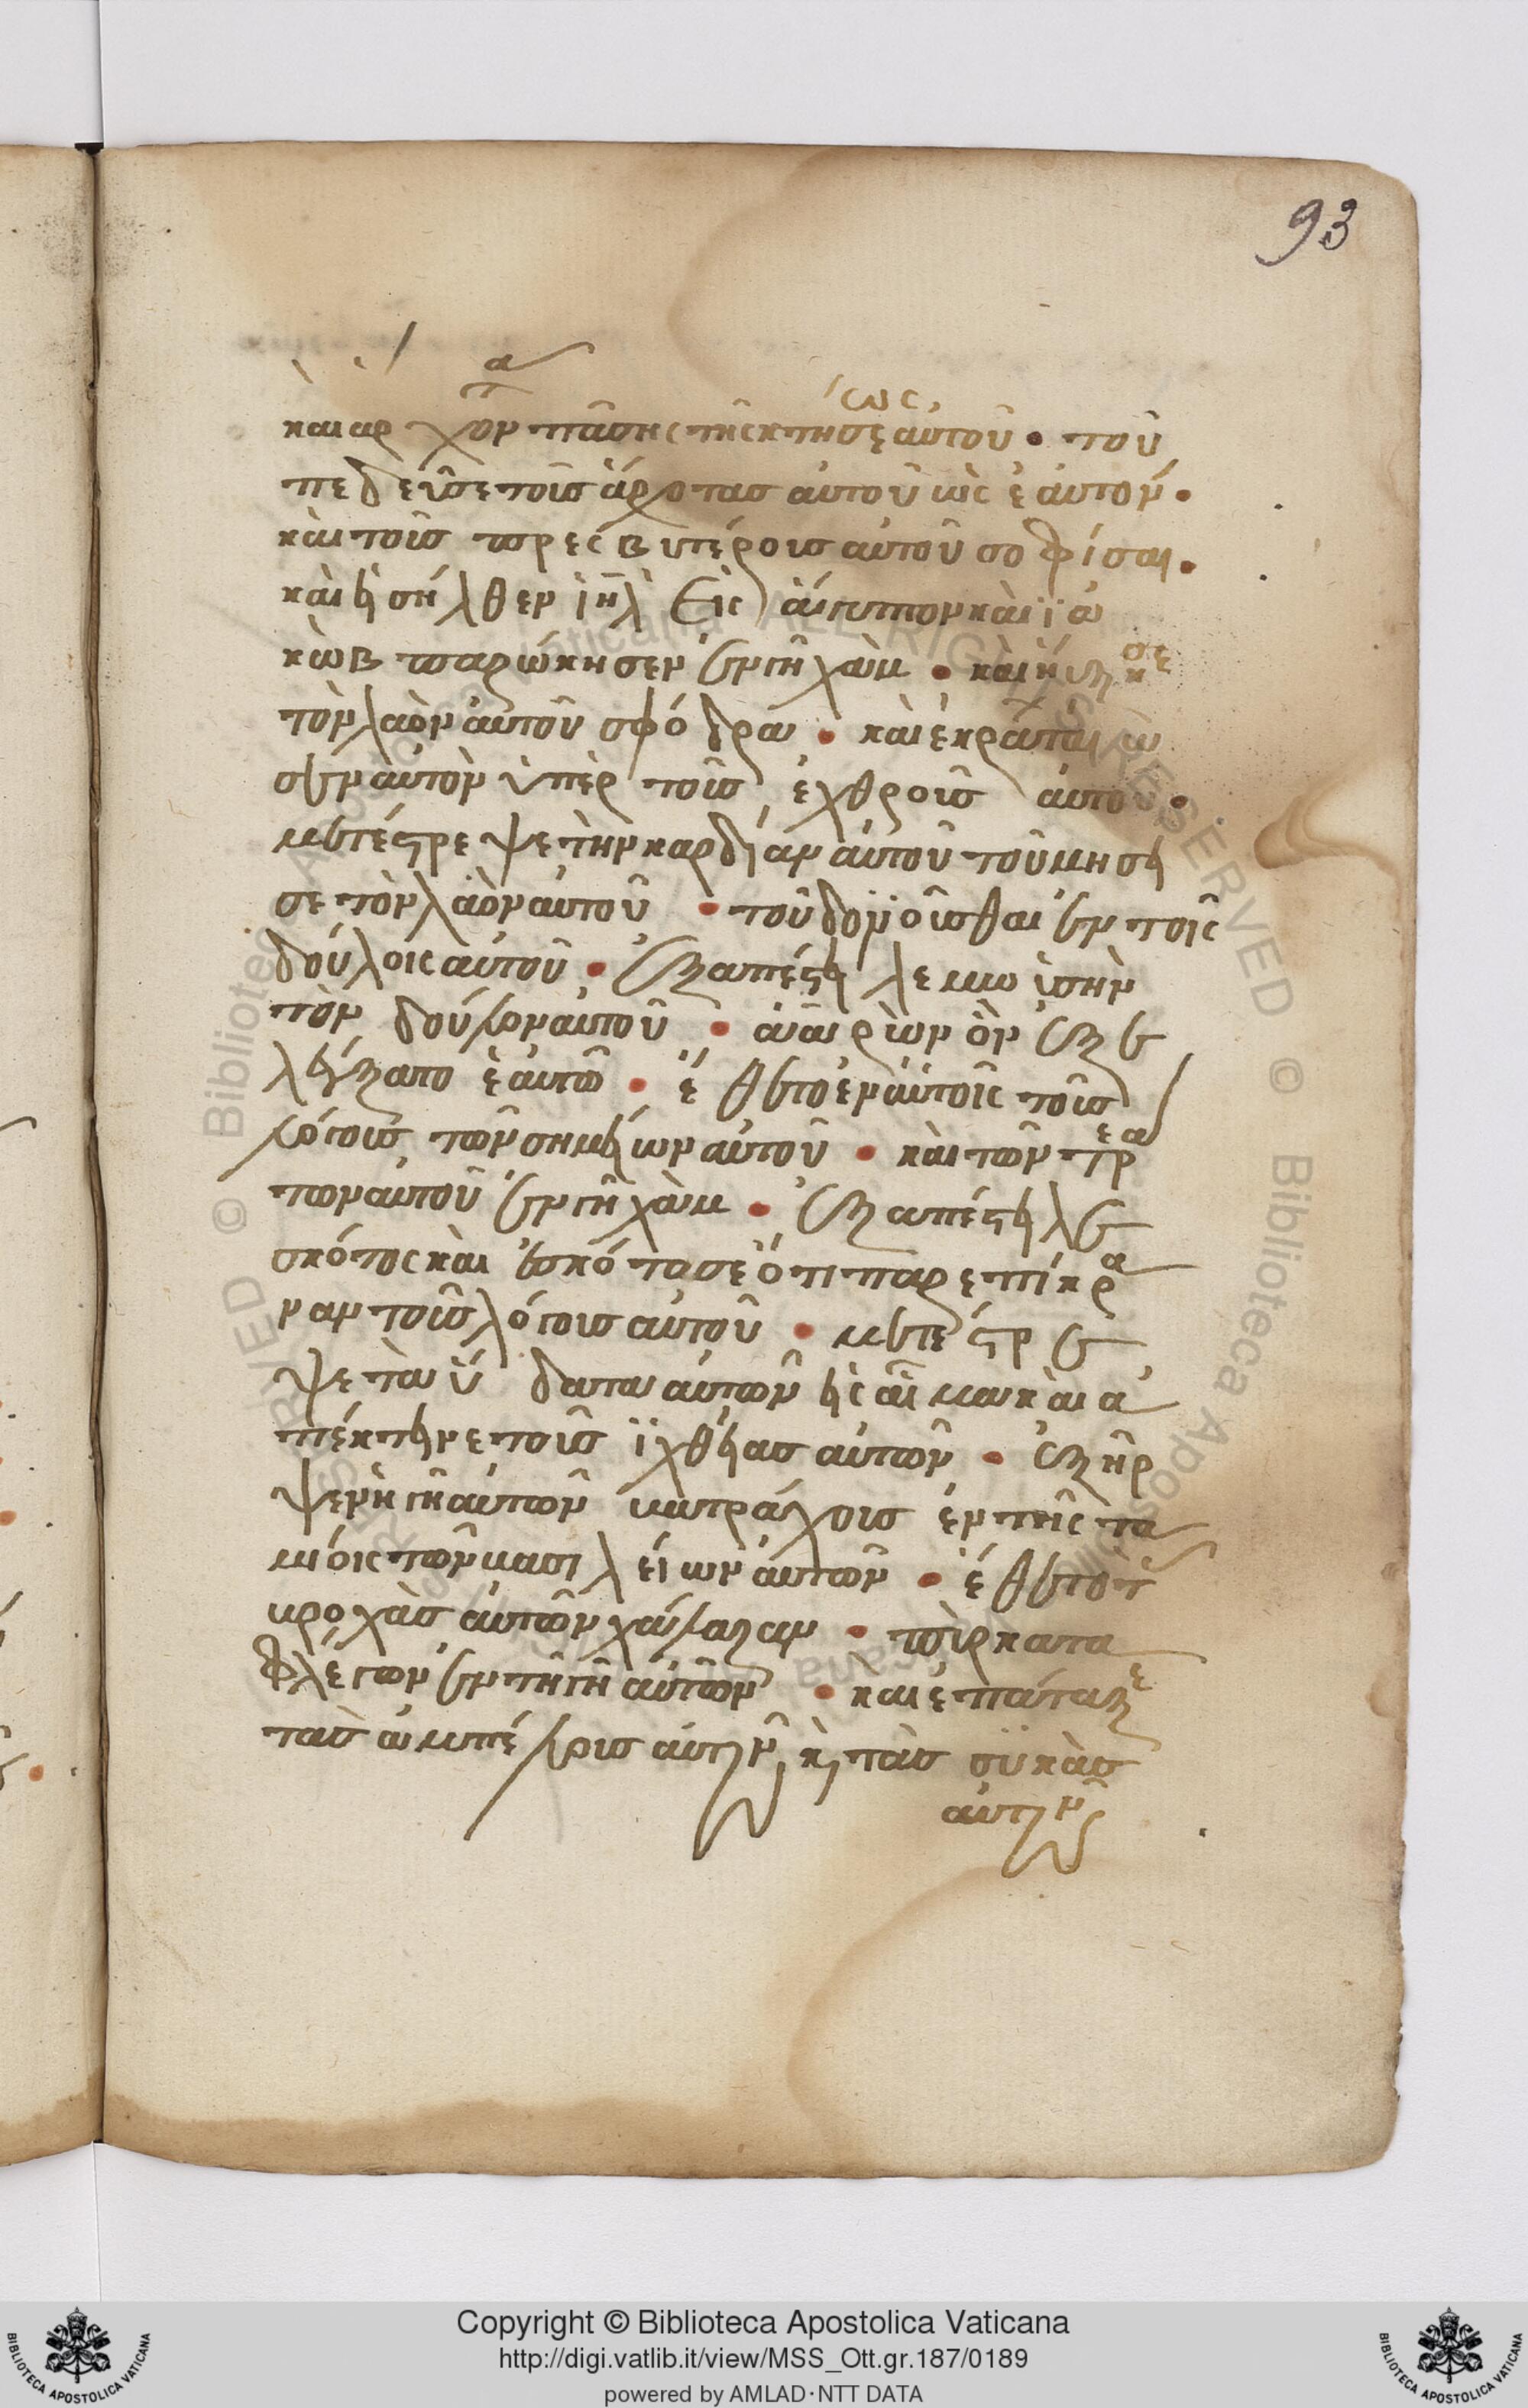 93
καὶ ἄρχοντα πάσης τῆς κτήσεως αὐτοῦ · τοῦ
πεδεῦσε τοὺς ἄρχοτας αὐτοῦ ὡς ἑαυτόν ·
καὶ τοὺς πρεσβυτέρους αὐτοῦ σοφίσαι ·
καὶ εἰσήλθεν ἰηλ εἰς αἴγυπτον καὶ ϊα
κὼβ παρώκησεν ἐν γῆ χὰμ · καὶ ηὔξησε
τὸν λαὸν αὐτοῦ σφόδρα · καὶ ἐκραταίω
σεν αὐτὸν ὑπὲρ τοὺς ἐχθροὺς αὐτοῦ ·
μετέστρεψε τὴν καρδίαν αὐτοῦ τοῦ μησεῖ
σε τὸν λαὸν αὐτοῦ · τοῦ δολϊοῦσθαι ἐν τοῖς
δούλοις αὐτοῦ · ἐξαπέστειλε μωϊσὴν
τὸν δούλον αὐτοῦ · ἀαρὼν ὃν ἐξε
λείξατο ἑαυτῶ · ἔθετο ἐν αὐτοῖς τοὺς
λόγους τῶν σημείων αὐτοῦ · καὶ τῶν τερά
των αὐτοῦ ἐν γῆ χάμ · ἐξαπέστειλε
σκότος καὶ ἐσκότασε ὅτι παρεπίκρα
ναν τοὺς λόγους αὐτοῦ · μετέστρε
ψε τὰ ὕδατα αὐτῶν εἰς αἷμα καὶ ἀ
πέκτεινε τοὺς ϊχθείας αὐτῶν · ἐξῆρ
ψεν ἡ γῆ αὐτῶν βατράχους ἐν τοῖς τα
μίοις τῶν βασιλείων αὐτῶν · ἔθετο τ
βροχὰς αὐτῶν χάλαζαν · πῦρ κατα
φλέγων ἐν τῆ γῆ αὐτῶν · καὶ ἐπάταξε
τὰς ἀμπέλους αὐτῶν κ τὰς συκὰς
αὐτῶν
Copyright © Biblioteca Apostolica Vaticana
http://digi.vatlib.it/view/MSS_Ott.gr.187/0189
powered by AMLAD·NTT DATA